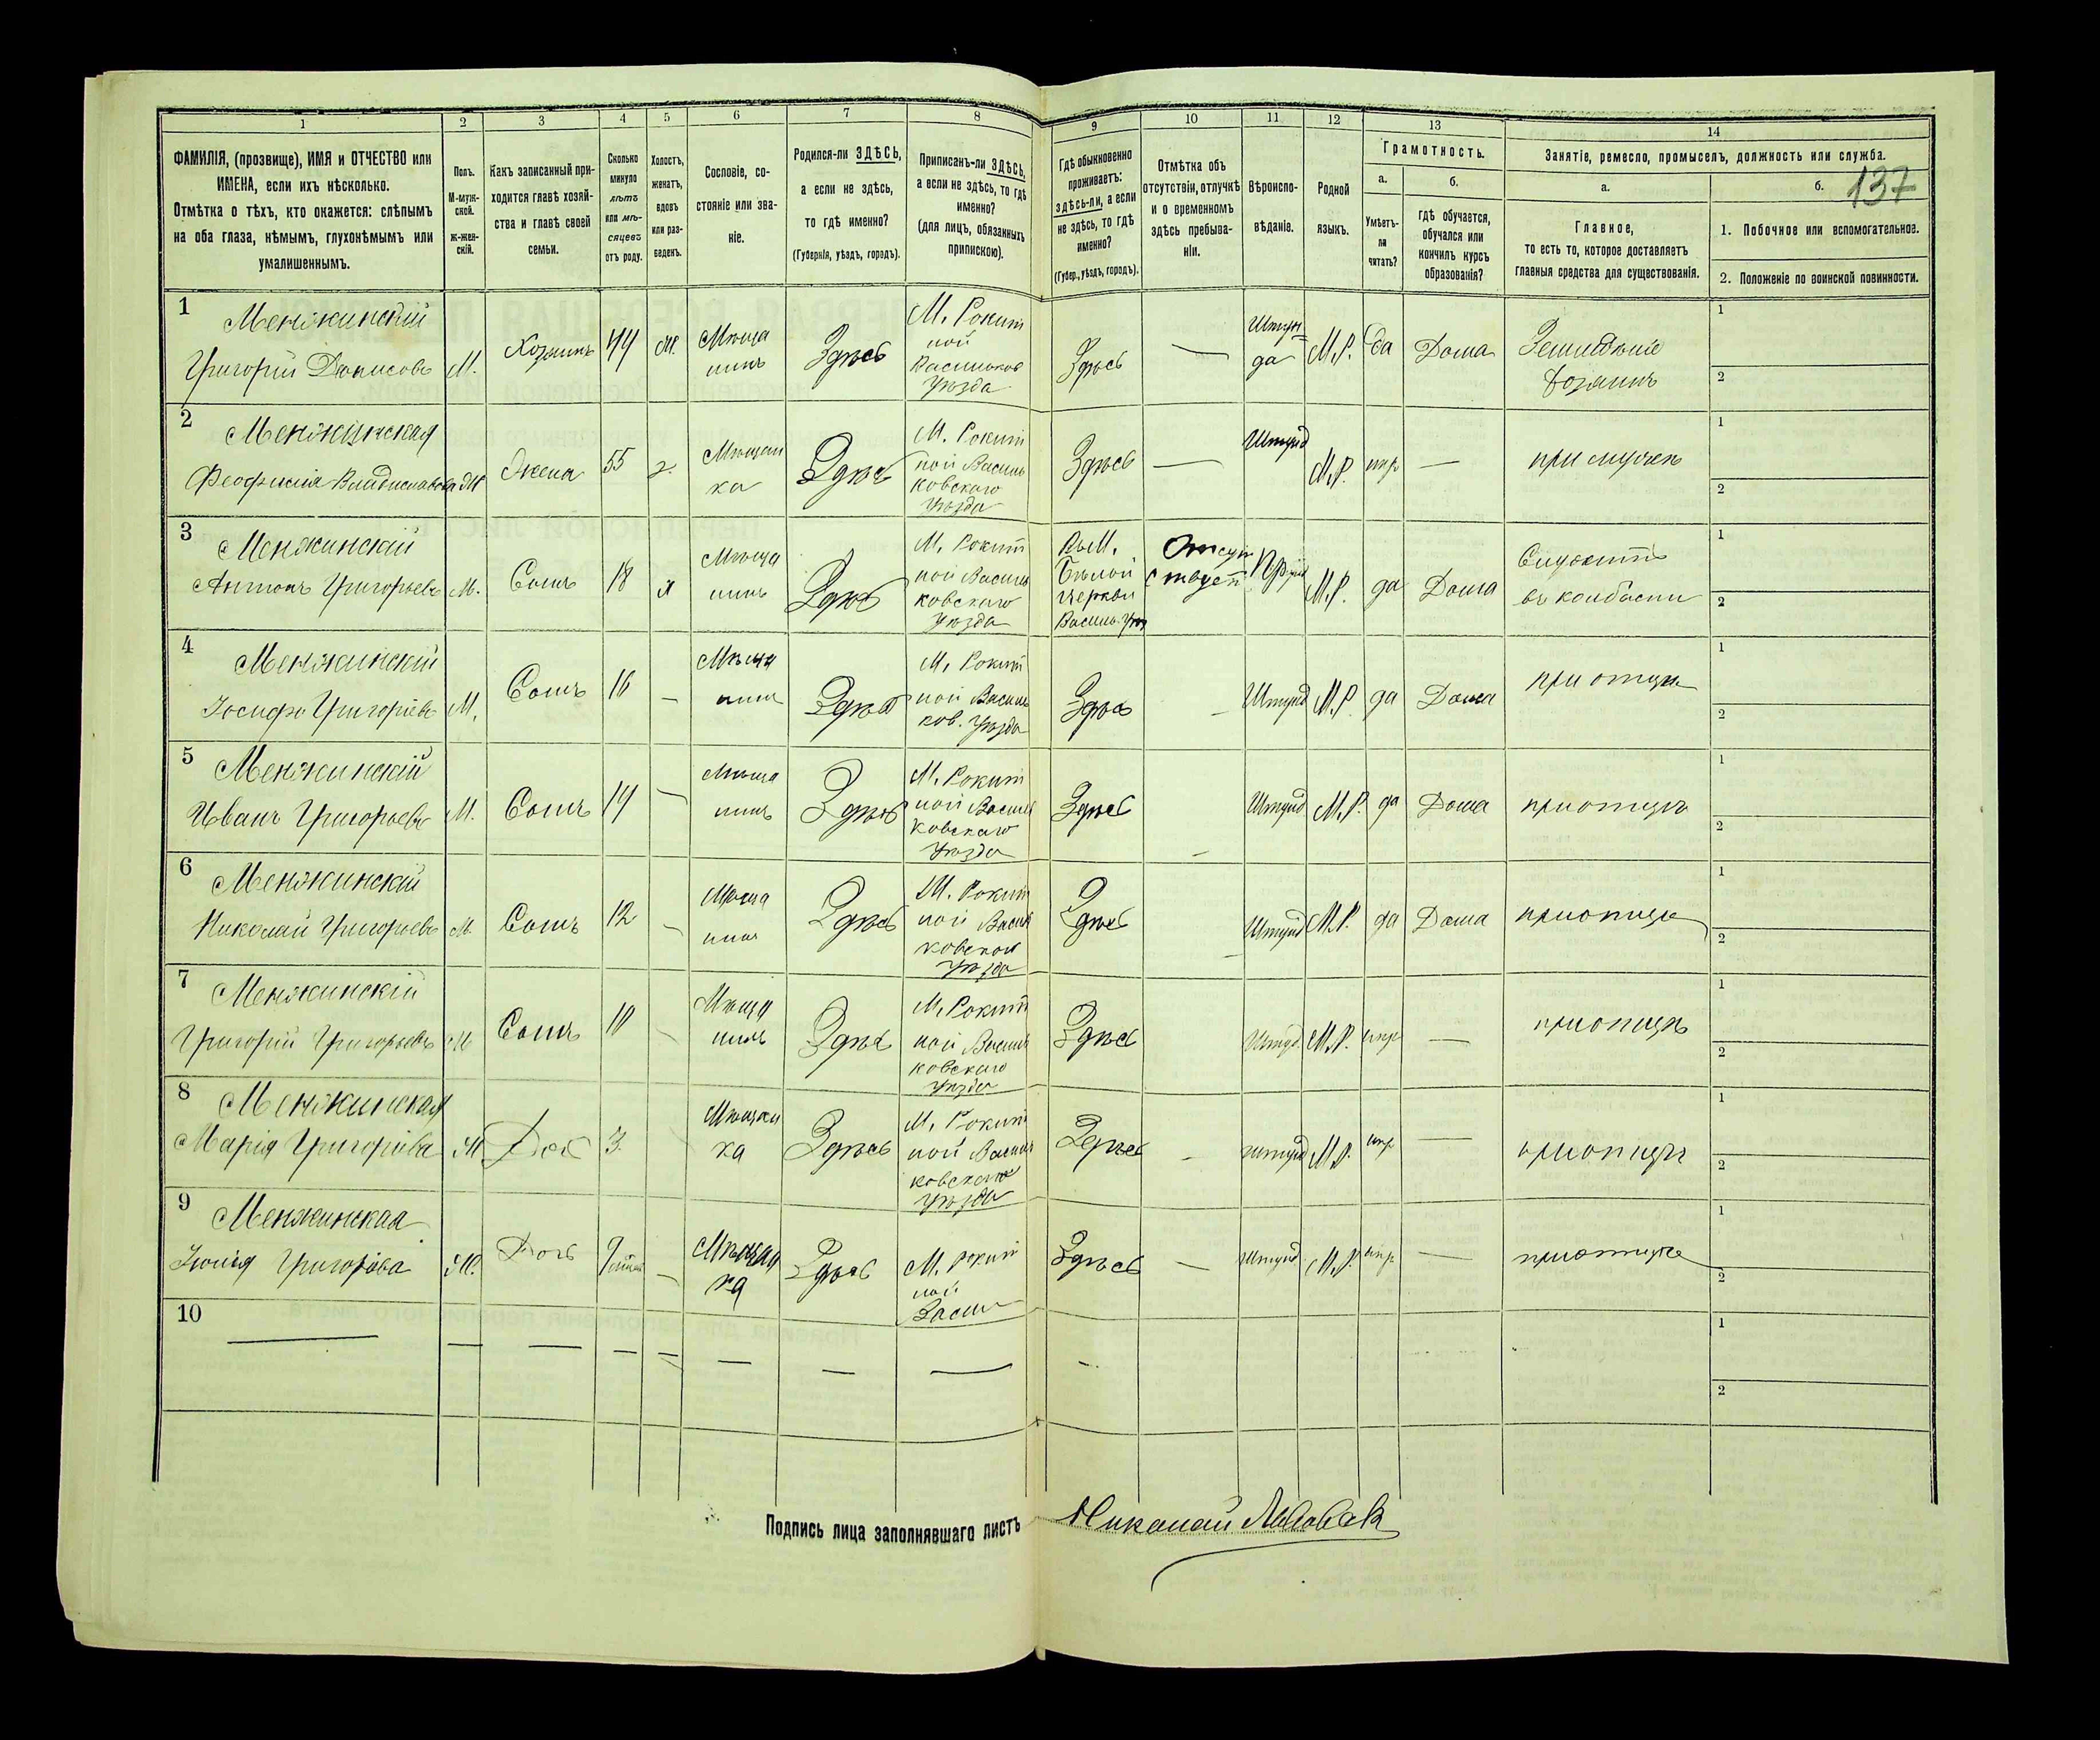 137
1 2 3 4 5 6 7 8 9 10 11 12 13 14
ФАМИЛІЯ, (прозвище), ИМЯ и ОТЧЕСТВО или
ИМЕНА, если ихъ нѣсколько.
Отмѣтка о тѣхъ, кто окажется: слѣпымъ
на оба глаза, нѣмымъ, глухонѣмымъ или
умалишеннымъ.
Полъ.
М-муж-
ской.
ж-жен-
скій.
Какъ записанный при-
ходится главѣ хозяй-
ства и главѣ своей
семьи.
Сколько
минуло
лѣтъ
или мѣ-
сяцевъ
отъ роду.
Холостъ,
женатъ,
вдовъ
или раз-
веденъ.
Сословіе, со-
стояніе или зва-
ніе.
Родился-ли ЗДѢСЬ,
а если не здѣсь,
то гдѣ именно?
(Губернія, уѣздъ, городъ).
Приписанъ-ли ЗДѢСЬ,
а если не здѣсь, то гдѣ
именно?
(для лицъ, обязанныхъ
припискою).
Гдѣ обыкновенно
проживаетъ:
здѣсь-ли, а если
не здѣсь, то гдѣ
именно?
(Губер., уѣздъ, городъ).
Отмѣтка объ
отсутствіи, отлучкѣ
и о временномъ
здѣсь пребыва-
ніи.
Вѣроиспо-
вѣданіе.
Родной
языкъ.
Грамотность.
а.
Умѣетъ-
ли
читать?
б.
гдѣ обучается,
обучался или
кончилъ курсъ
образованія?
Занятіе, ремесло, промыселъ, должность или служба.
а.
Главное,
то есть то, которое доставляетъ
главныя средства для существованія.
б.
1. Побочное или вспомогательное.
2. Положеніе по воинской повинности.
1
Менжинскій
Григорій Денисовъ
М.
Хозяинъ
44
Мѣща
нинъ
Здѣсь
М. Рокит
ной
Васильков
Уѣзда
Здѣсь
—
Штун
да
М.Р.
да
Дома
Хозяинъ
1
2
2
Менжинская
Феофилія Владиславова
Жена
55
Мѣщан
ка
Здѣсь
М. Рокит
ной Василь
ковскаго
Уѣзда
Здѣсь
—
Штунд
М.Р.
нпр
—
при мужѣ
1
2
3
Менжинскій
Антонъ Григорьевъ
М.
Сынъ
18
Мѣща
нинъ
Здѣсь
М. Рокит
ной Василь
ковскаго
Уѣзда
Въ М.
Бѣлой
Церкви
Василь. Уѣз
Отсут
ствует
М.Р.
да
Дома
Служитъ
въ колбасни
1
2
4
Менжинскій
Іосифъ Григорьевъ
М.
Сынъ
16
—
Мѣща
нинъ
Здѣсь
М. Рокит
ной Василь
ков. Уѣзда
Здѣсь
—
Штунд
М.Р.
да
Дома
при отцѣ
1
2
5
Менжинскій
Иванъ Григорьевъ
М.
Сынъ
14
—
Мѣща
нинъ
Здѣсь
М. Рокит
ной Василь
ковскаго
Уѣзда
Здѣсь
—
Штунд
М.Р.
да
Дома
при отцѣ
1
2
6
Менжинскій
Николай Григорьевъ
М.
Сынъ
12
—
Мѣща
нинъ
Здѣсь
М. Рокит
ной Василь
ковскаго
Уѣзда
Здѣсь
—
Штунд
М.Р.
да
Дома
при отцѣ
1
2
7
Менжинскій
Григорій Григорьевъ
М
Сынъ
10
Мѣща
нинъ
Здѣсь
М. Рокит
ной Василь
ковскаго
Уѣзда
Здѣсь
Штунд
М.Р.
нпр
—
при отцѣ
1
2
8
Менжинская
Марія Григорьева
Доч
3.
Мѣщан
ка
Здѣсь
М. Рокит
ной Василь
ковскаго
Уѣзда
Здѣсь
—
штунд
М.Р.
нпр
—
при отцѣ
1
2
9
Менжинская
Григорьева
Дочь
—
Мѣщан
ка
Здѣсь
М. Рокит
ной
Васи
Здѣсь
—
Штунд
М.Р.
нпр
—
при отцѣ
1
2
10
— — — — — — — — —
1
2
Подпись лица заполнявшаго листъ
Николай